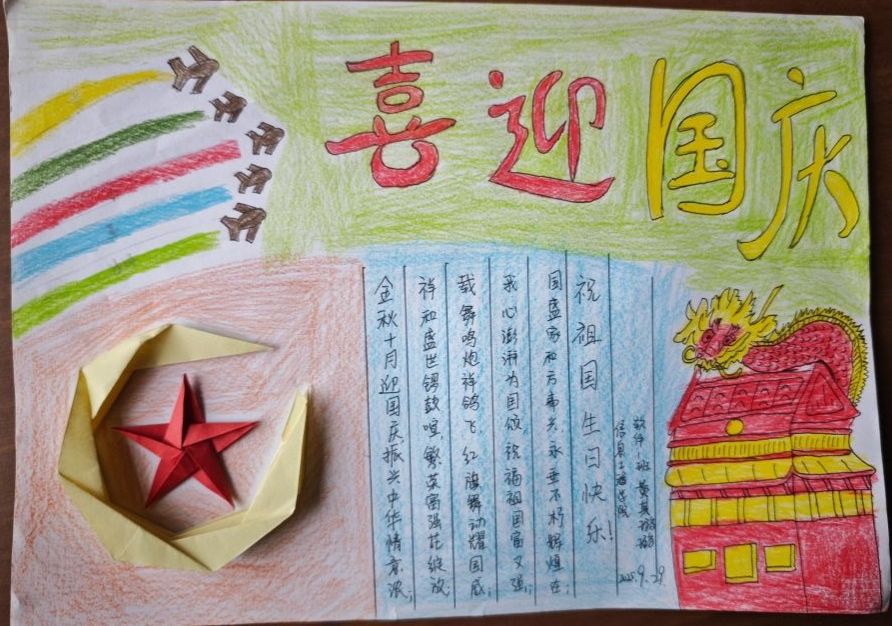 喜迎国庆
金秋十月迎国庆振兴中华情意浓;
祥和盛世锣鼓喧,繁荣富强花绽放
载舞鸣炮祥鸽飞,红旗舞动耀国威;
我心澎湃为国颂,祝福祖国富又强;
国盛家和万事兴,永垂不朽辉煌在;
祝祖国生日快乐!
信息工程学院
软件1班黄
9.29